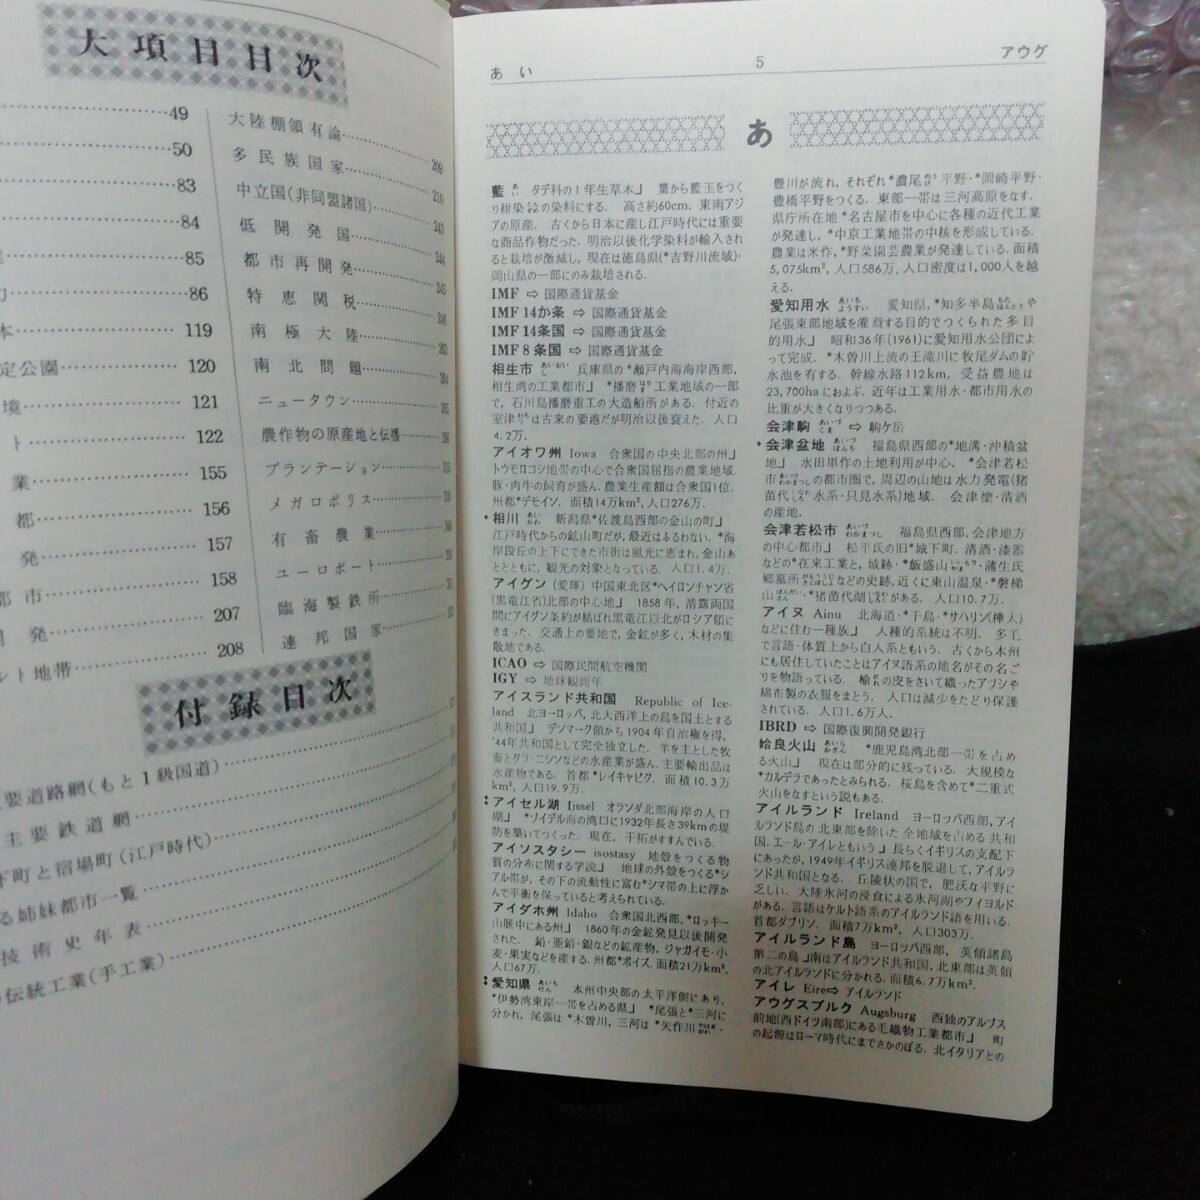 大項目目次
49
50
83
84
85
86
119
定公園 120
境 121
ト 122
業 155
都 156
発 157
都市 158
開発 207
ルト地帯 208
大陸棚領有論 209
多民族国家 210
中立国(非同盟諸国) 243
低開発国 244
都市再開発 245
特恵関税 246
南極大陸
南北問題
ニュータウン
農作物の原産地と伝播
プランテーション
メガロポリス
有畜農業
ユーロポート
臨海製鉄所
連邦国家
付録目次
主要道路網(もと1級国道)
主要鉄道網
下町と宿場町(江戸時代)
る姉妹都市一覧
技術史年表
伝統工業(手工業)
あい
5
アウゲ
あ
藍 あい タデ科の1年生草本」 葉から藍玉をつく
り紺染の染料にする. 高さ約60cm. 東南アジ
アの原産. 古くから日本に産し江戸時代には重要
な商品作物だった. 明治以後化学染料が輸入され
ると栽培が激減し, 現在は徳島県(*吉野川流域)・
岡山県の一部にのみ栽培される.
IMF ⇨ 国際通貨基金
IMF 14か条 ⇨ 国際通貨基金
IMF 14条国 ⇨ 国際通貨基金
IMF 8条国 ⇨ 国際通貨基金
相生市 あいおいし 兵庫県の*瀬戸内海海岸西部,
相生湾の工業都市」 *播磨はりま工業地域の一部
で, 石川島播磨重工の大造船所がある. 付近の
室津むろつは古来の要港だが明治以後衰えた. 人口
4.2万.
アイオワ州 Iowa 合衆国の中央北部の州」
トウモロコシ地帯の中心で合衆国屈指の農業地域.
豚・肉牛の飼育が盛ん. 農業生産額は合衆国1位.
州都*デモイン. 面積14万km², 人口276万.
*相川 あいかわ 新潟県*佐渡島西部の金山の町」
江戸時代からの鉱山町だが, 最近はふるわない. *海
岸段丘の上下にできた市街は風光に恵まれ, 金山あ
ととともに, 観光の対象となっている. 人口1.4万.
アイグン (愛琿) 中国東北区*ヘイロンチャン省
(黒竜江省)北部の中心地」 1858年, 清露両国
間にアイグン条約が結ばれ黒竜江以北がロシア領に
きまった. 交通上の要地で, 金鉱が多く, 木材の集
散地である.
ICAO ⇨ 国際民間航空機関
IGY ⇨ 地球観測年
アイスランド共和国 Republic of Ice-
land 北ヨーロッパ, 北大西洋上の島を国土とする
共和国」 デンマーク領から1904年自治権を得,
'44年共和国として完全独立した. 羊を主とした牧
畜とタラ・ニシンなどの水産業が盛ん. 主要輸出品は
水産物である. 首都*レイキャビク. 面積10.3万
km², 人口19.9万.
アイセル湖 Ijssel オランダ北部海岸の人口
湖」 *ゾイデル海の湾口に1932年長さ39kmの堤
防を築いてつくった. 現在, 干拓がすすんでいる.
アイソスタシー isostasy 地殻をつくる物
質の分布に関する学説」 地球の外殻をつくる*シ
アル帯が, その下の流動性に富む*シマ帯の上に浮か
んで平衡を保っていると考えられている.
アイダホ州 Idaho 合衆国北西部, *ロッキー
山脈中にある州」 1860年の金鉱発見以後開発
された. 鉛・亜鉛・銀などの鉱産物, ジャガイモ・小
麦・果実などを産する. 州都*ボイス. 面積21万km²,
人口67万.
愛知県 あいちけん 本州中央部の太平洋側にあり,
*伊勢湾東岸一帯を占める県」 *尾張と*三河に
分かれ, 尾張は*木曽川, 三河は*矢作川やはぎがわ,
豊川が流れ, それぞれ*濃尾のうび平野・*岡崎平野・
豊橋平野をつくる. 東部一帯は三河高原をなす.
県庁所在地*名古屋市を中心に各種の近代工業
が発達し, *中京工業地帯の中核を形成している.
農業は米作, *野菜園芸農業が発達している. 面積
5,075km², 人口586万, 人口密度は1,000人を越
える.
愛知用水 あいちようすい 愛知県, *知多半島ちたはんとうや
尾張東部地域を灌漑する目的でつくられた多目
的用水」 昭和36年(1961)に愛知用水公団によ
って完成. *木曽川上流の王滝川に牧尾ダムの貯
水池を有する. 幹線水路112km, 受益農地は
23,700haにおよぶ. 近年は工業用水・都市用水の
比重が大きくなりつつある.
会津駒 あいづこま ⇨ 駒ケ岳
*会津盆地 あいづぼんち 福島県西部の*地溝・沖積盆
地」 水田単作の土地利用が中心. *会津若松
市わかまつしの都市圏で, 周辺の山地は水力発電(猪
苗代しろ水系・只見水系)地域. 会津塗・清酒
の産地.
会津若松市 あいづわかまつし 福島県西部, 会津地方
の中心都市」 松平氏の旧*城下町. 清酒・漆器
などの*在来工業と, 城跡・*飯盛山いいもりやま・蒲生氏
郷墓所などの史跡, 近くに東山温泉・*磐梯
山ばんだいさん, *猪苗代湖がある. 人口10.7万.
アイヌ Ainu 北海道・*千島・*サハリン(樺太)
などに住む一種族」 人種的系統は不明. 多毛
で言語・体質上から白人系ともいう. 古くから本州
にも居住していたことはアイヌ語系の地名がその名ご
りを物語っている. 楡にれの皮をさいて織ったアツシや
綿布製の衣服をまとう. 人口は減少をたどり保護
されている. 人口1.6万人.
IBRD ⇨ 国際復興開発銀行
姶良火山 あいらかざん *鹿児島湾北部一帯を占め
る火山」 現在は部分的に残っている. 大規模な
*カルデラであったとみられる. 桜島を含めて*二重式
火山をなすという説もある.
アイルランド Ireland ヨーロッパ西部, アイ
ルランド島の北東部を除いた全地域を占める共和
国. エール・アイレともいう」 長らくイギリスの支配下
にあったが, 1949年イギリス連邦を脱退して, アイルラ
ンド共和国となる. 丘陵状の国で, 肥沃な平野に
乏しい. 大陸氷河の浸食による氷河湖やフィヨルド
がある. 言語はケルト語系のアイルランド語を用いる.
首都ダブリン. 面積7万km², 人口303万.
アイルランド島 ヨーロッパ西部, 英領諸島
第二の島」南はアイルランド共和国, 北東部は英領
の北アイルランドに分かれる. 面積6.7万km².
アイレ Eire⇨ アイルランド
アウグスブルク Augsburg 西独のアルプス
前地(西ドイツ南部)にある毛織物工業都市」 町
の起源はローマ時代にまでさかのぼる. 北イタリアとの